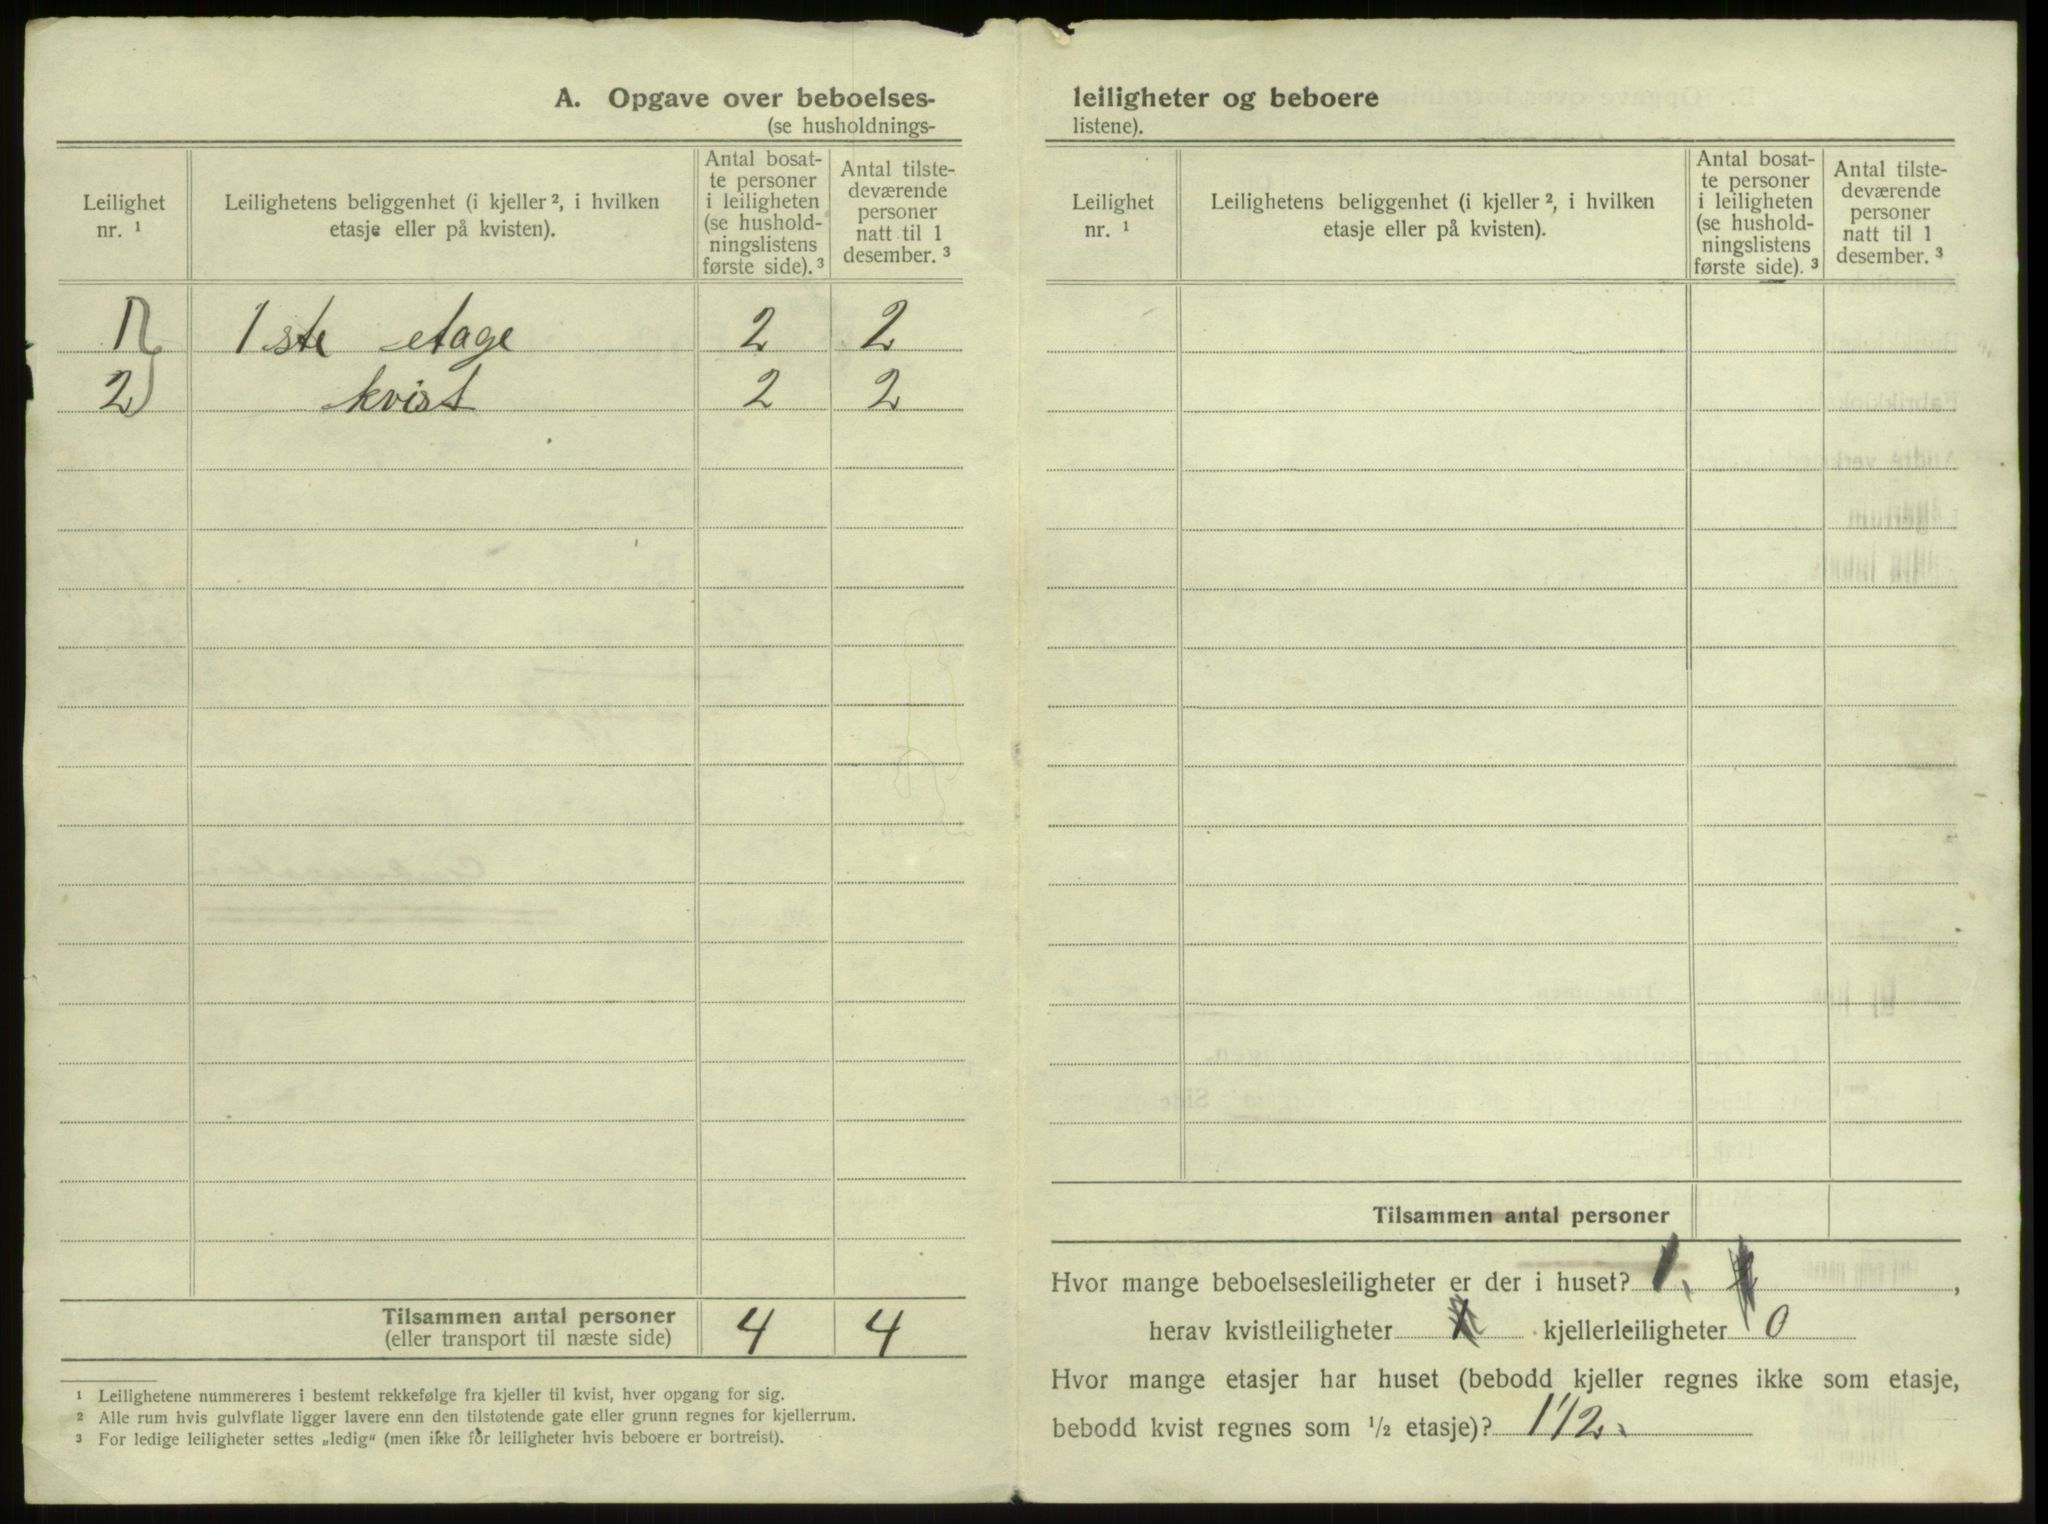 A. Opgave over beboelses-
(se husholdnings-
Leilighet nr. ¹
Leilighetens beliggenhet (i kjeller ², i hvilken
etasje eller på kvisten).
Antal bosat-
te personer
i leiligheten
(se hushold-
ningslistens
første side). ³
Antal tilste-
deværende
personer
natt til 1
desember. ³
1 1ste etage 2 2
2 kvist 2 2
Tilsammen antal personer 4 4
(eller transport til næste side)
¹ Leilighetene nummereres i bestemt rekkefølge fra kjeller til kvist, hver opgang for sig.
² Alle rum hvis gulvflate ligger lavere enn den tilstøtende gate eller grunn regnes for kjellerrum.
³ For ledige leiligheter settes „ledig" (men ikke for leiligheter hvis beboere er bortreist).
leiligheter og beboere
listene).
Leilighet nr. ¹
Leilighetens beliggenhet (i kjeller ², i hvilken
etasje eller på kvisten).
Antal bosat-
te personer
i leiligheten
(se hushold-
ningslistens
første side). ³
Antal tilste-
deværende
personer
natt til 1
desember. ³
Tilsammen antal personer
Hvor mange beboelsesleiligheter er der i huset? 1. ,
herav kvistleiligheter kjellerleiligheter 0
Hvor mange etasjer har huset (bebodd kjeller regnes ikke som etasje,
bebodd kvist regnes som ½ etasje)? 1 1/2.